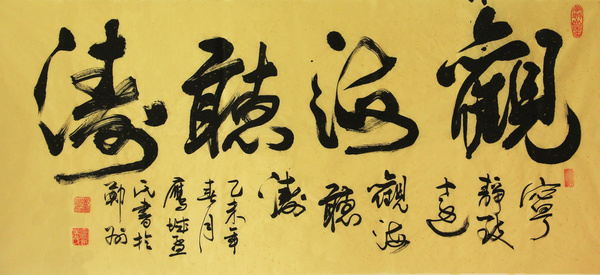 觀海聽濤
寧
靜致
遠
觀海
聽
濤
乙未年
春月
鷹城
民書於
鄭州